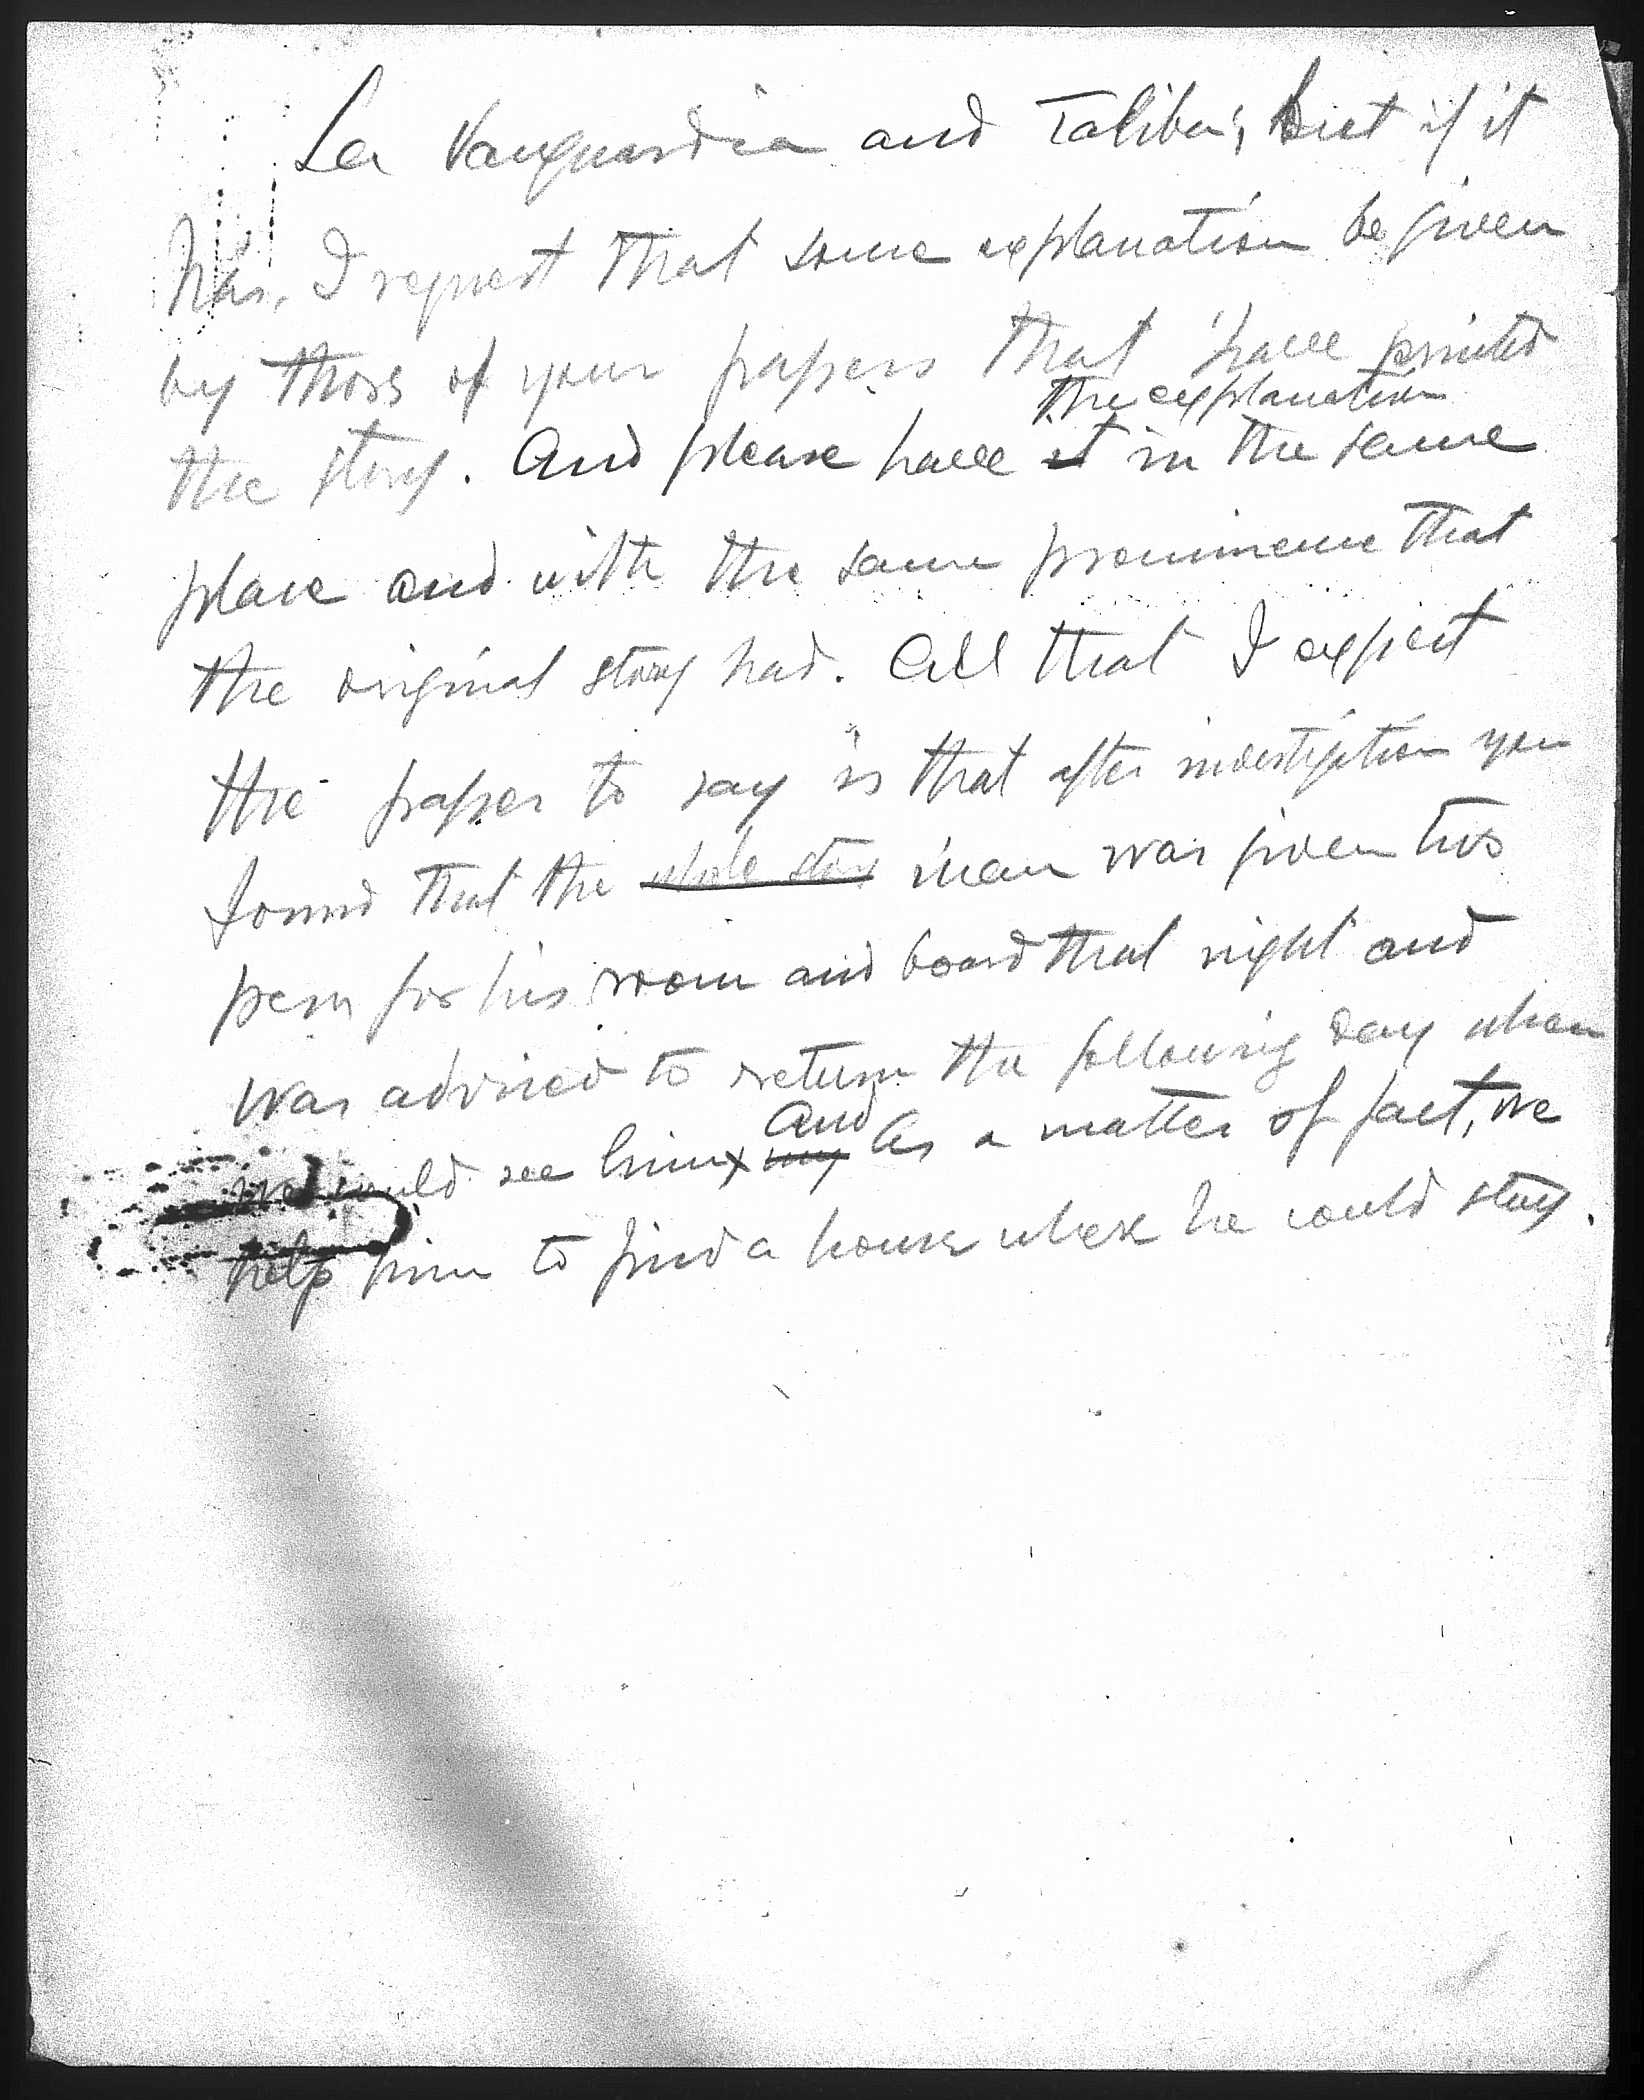 La Vanguardia and Taliba; But if it
has, I request that some explanation be given
by those of your papers that have printed
the explanation
the story. And please have it in the same
place and with the same prominence that
the original story had. All that I expect
the paper to say is that after investigation you
found that the whole story man was given two
pesos for his room and board that night and
was advised to return the following day when
And
we would see him, As a matter of fact, we
help him to find a house where he could stay.